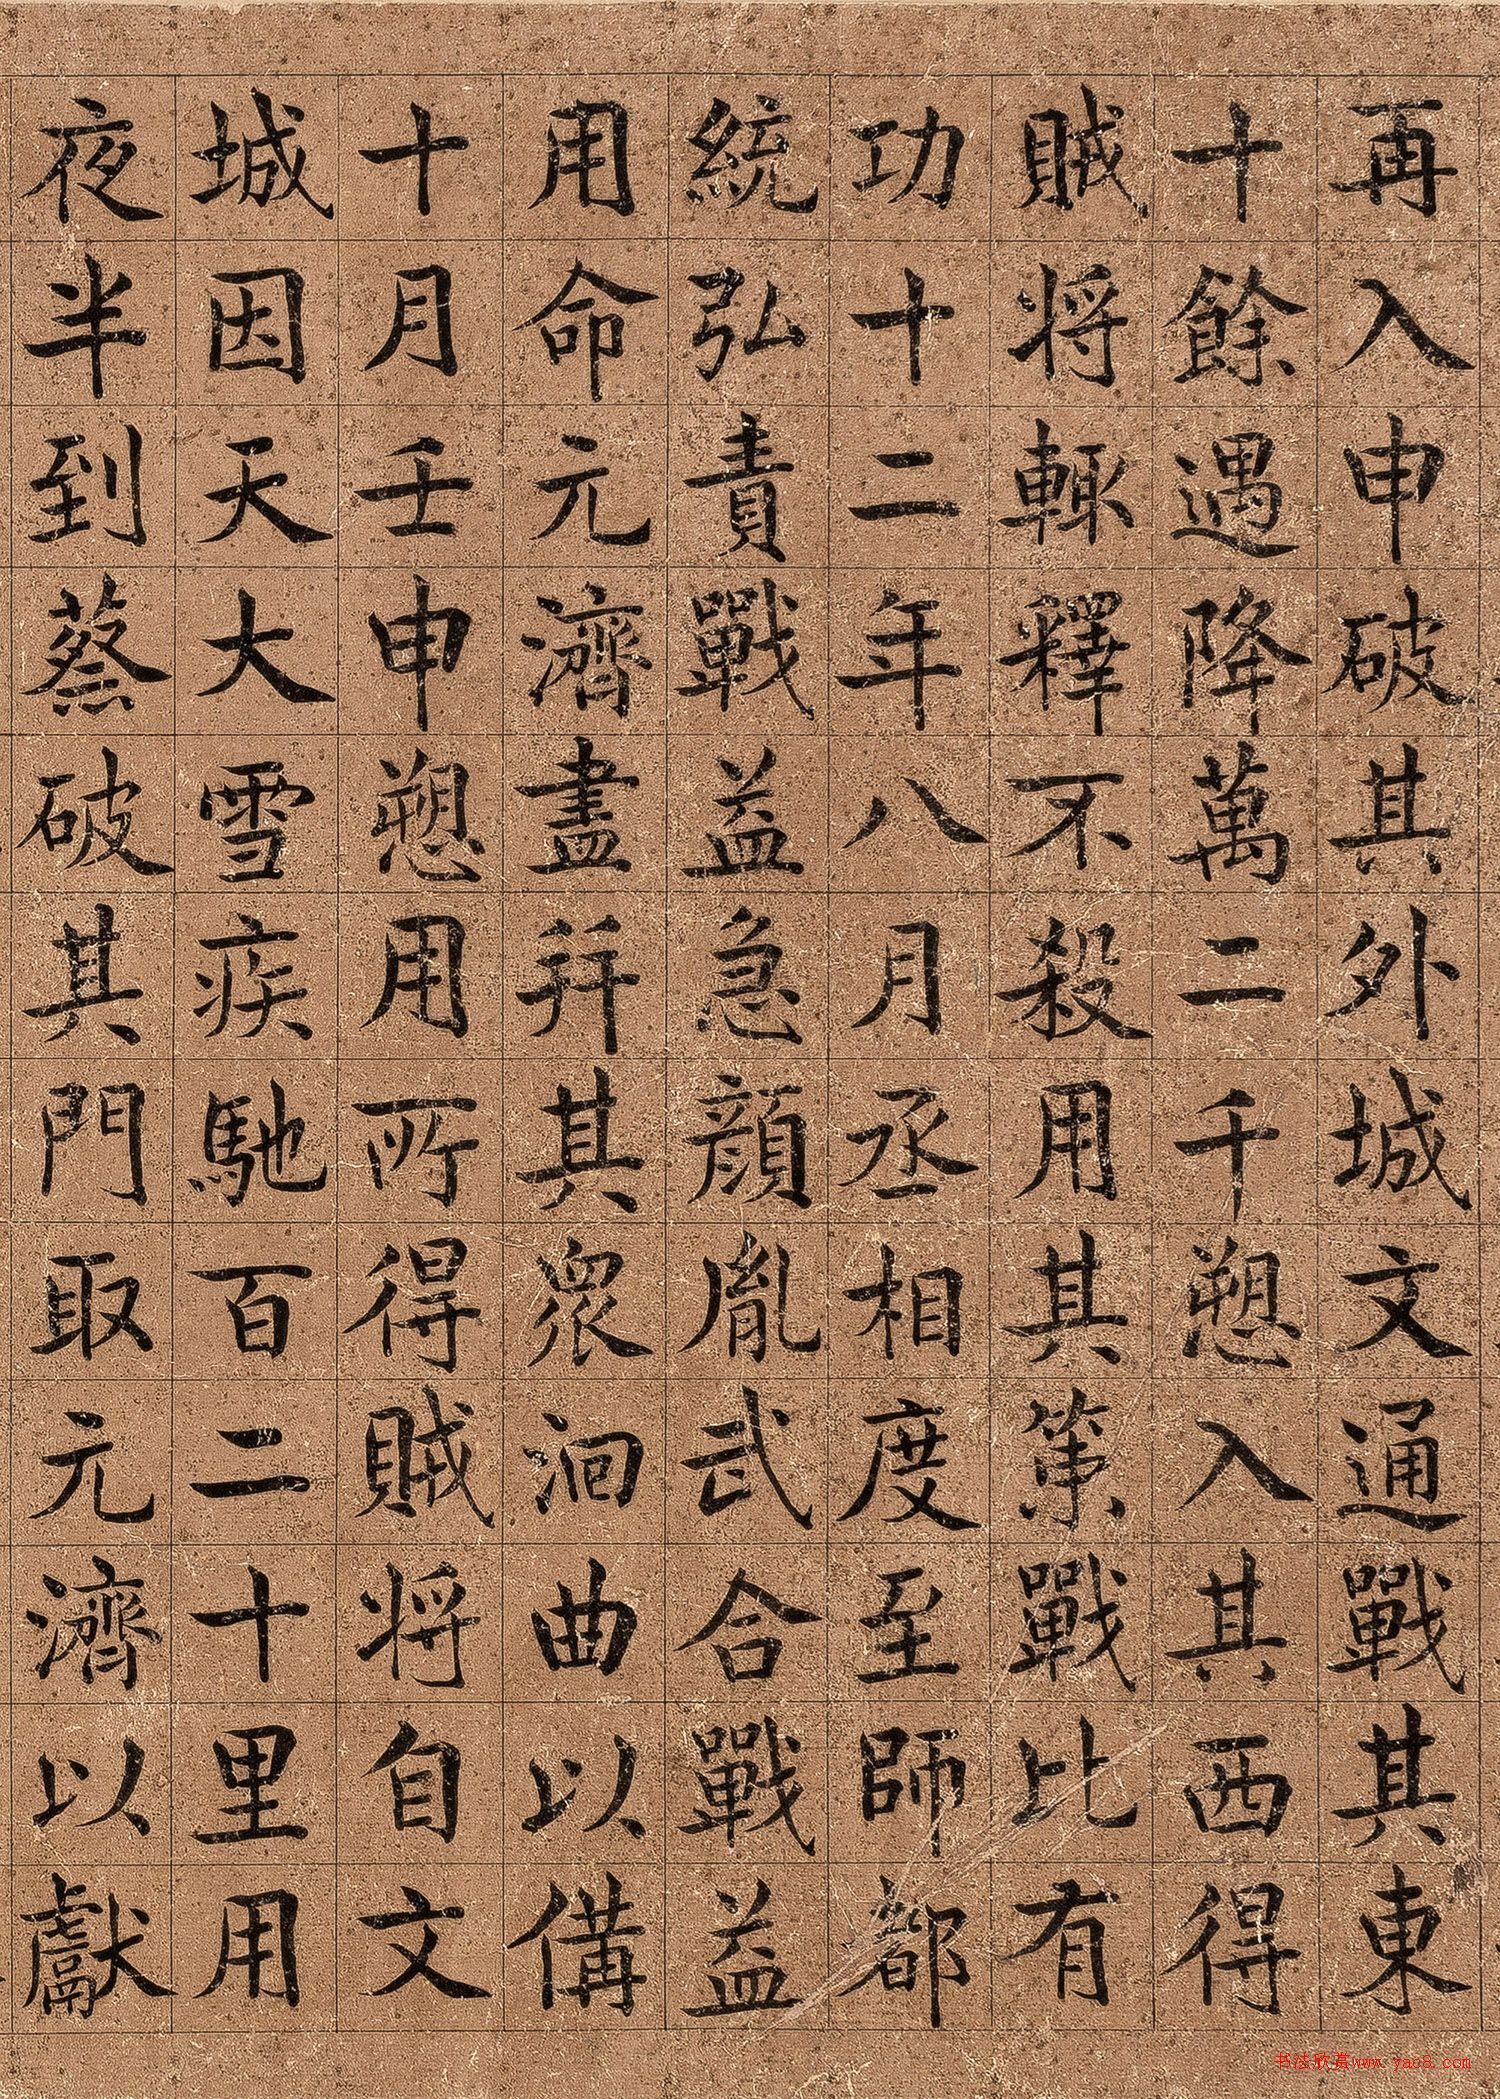 再入申破其外城文通戰其東
十餘遇降萬二千愬入其西得
賊將輙釋不殺用其策戰比有
功十二年八月丞相度至師都
統弘責戰益急顏胤武合戰益
用命元濟盡并其眾洄曲以備
十月壬申愬用所得賊將自文
城因天大雪疾馳百二十里用
夜半到蔡破其門取元濟以獻
书法欣赏www.yac8.com